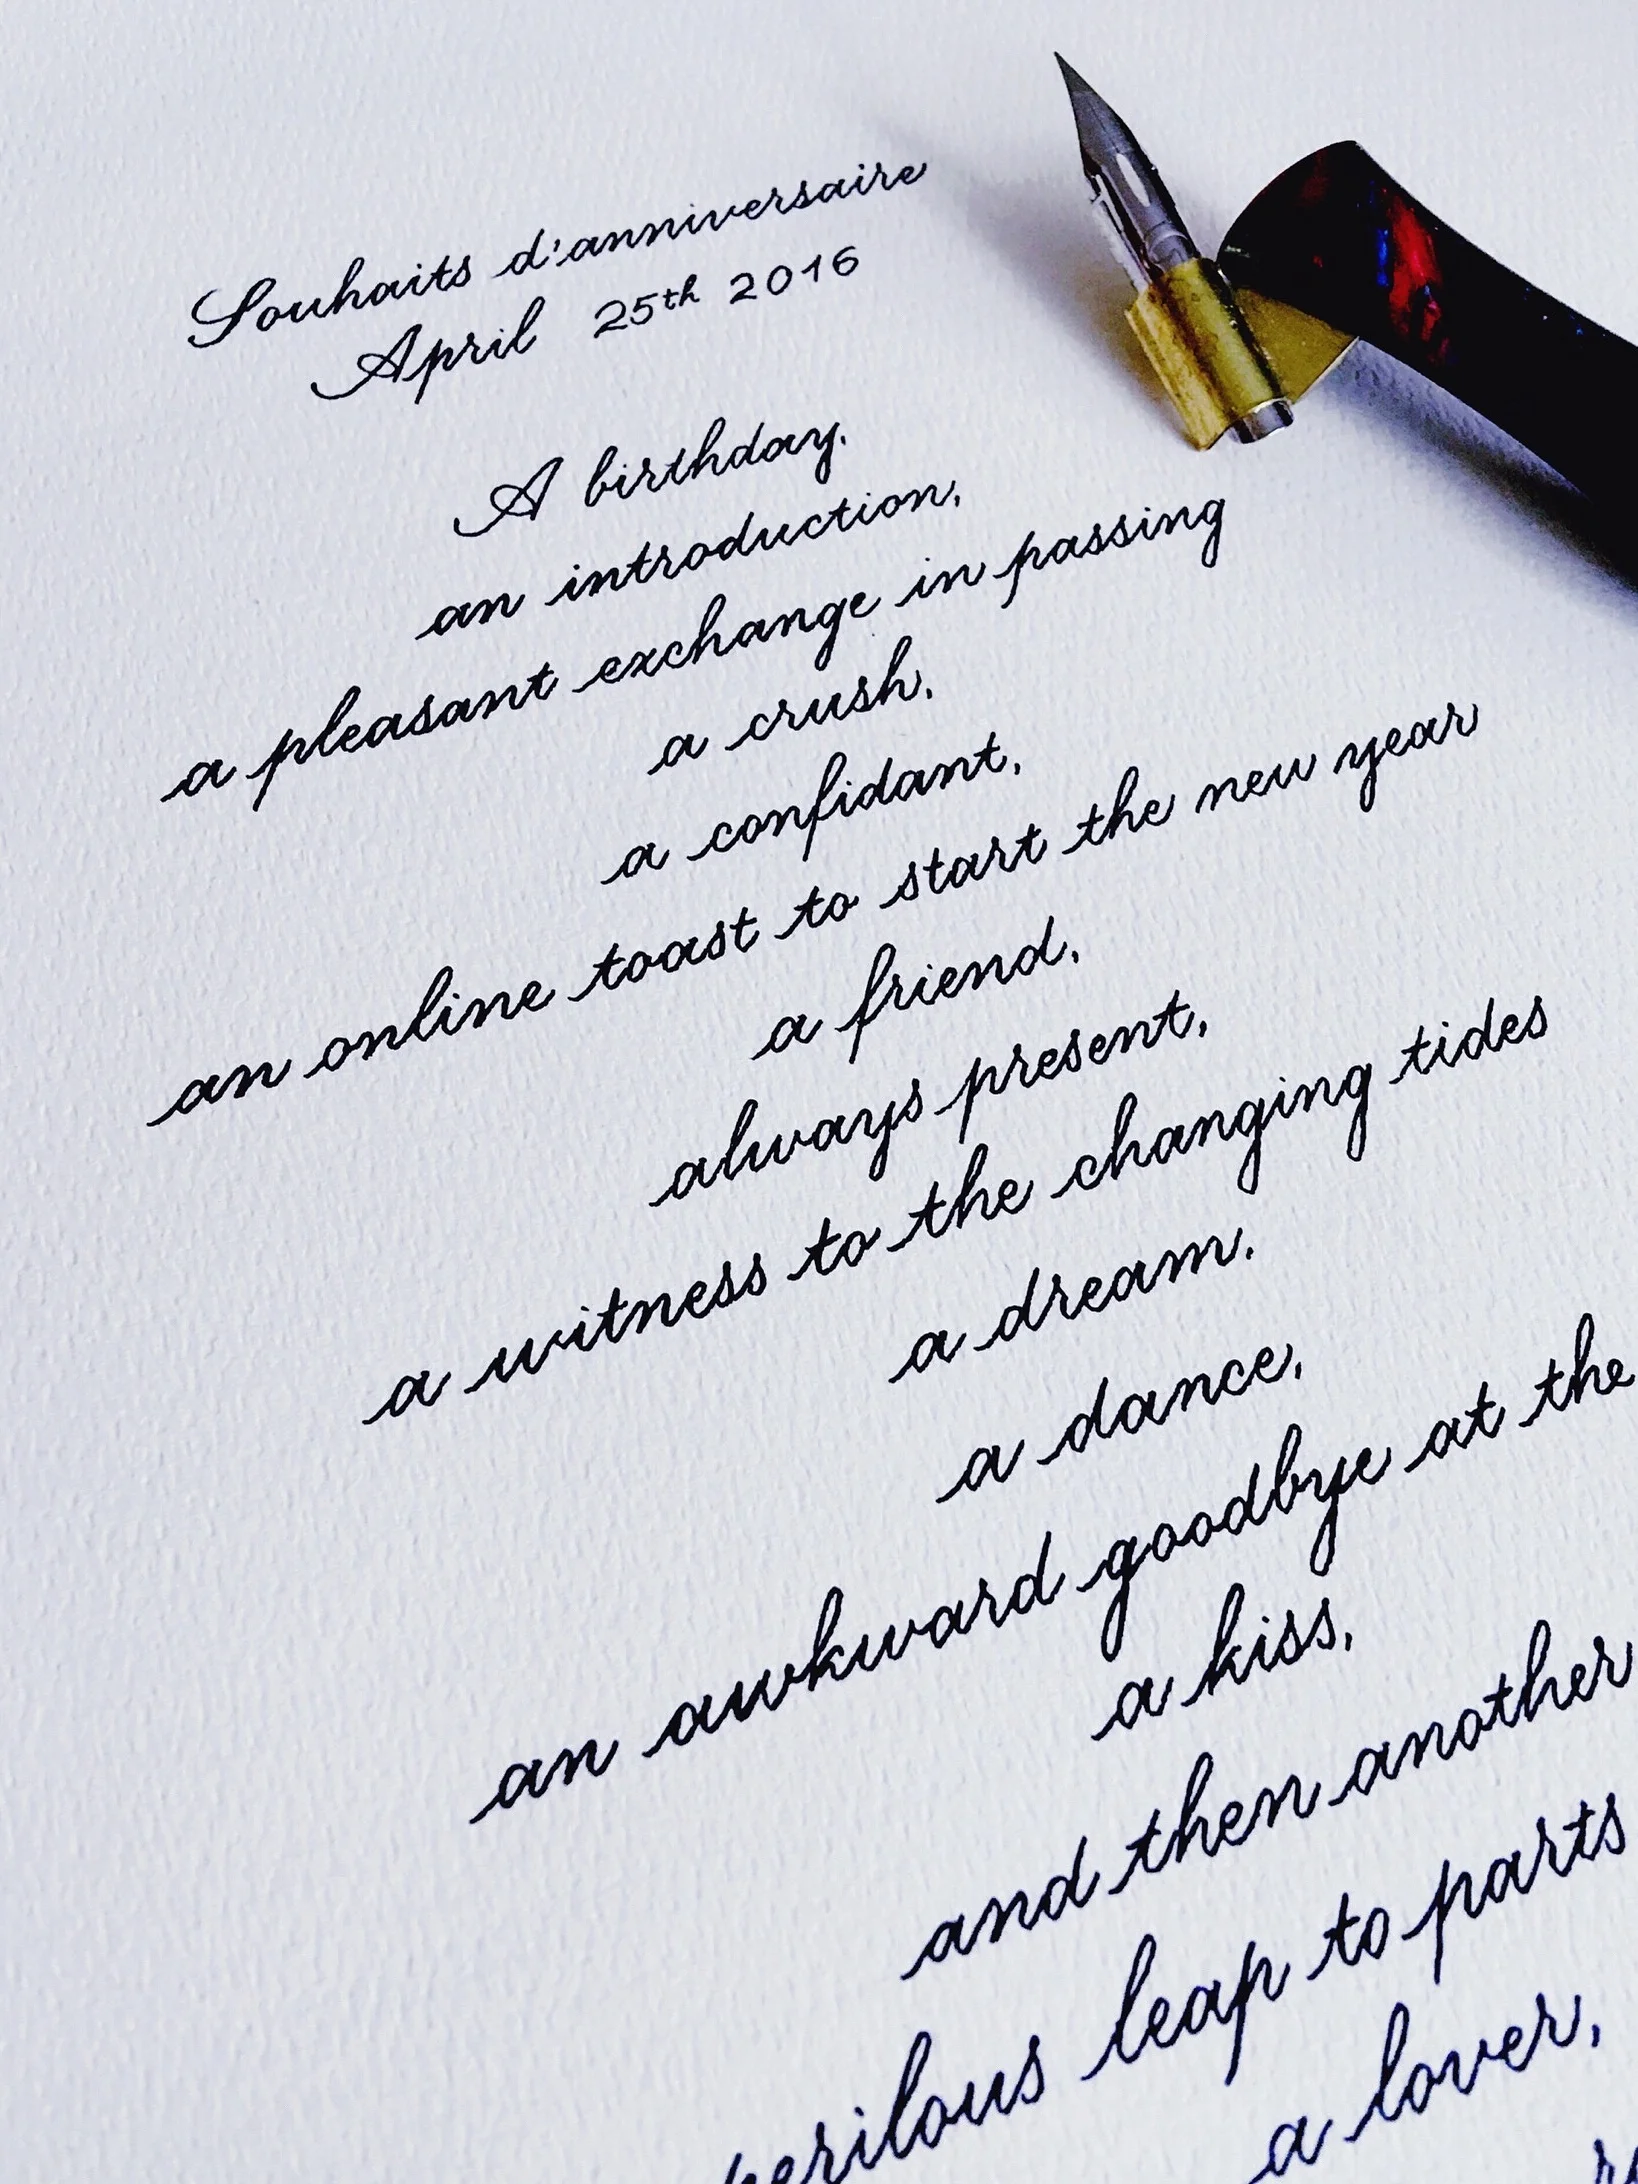 Souhaits d'anniversaire
April 25th 2016
A birthday.
an introduction,
a pleasant exchange in passing
a crush.
a confidant,
an online toast to start the new year
a friend,
always present,
a witness to the changing tides
a dream.
a dance,
an awkward goodbye at the
a kiss,
and then another
leap to parts
a lover,